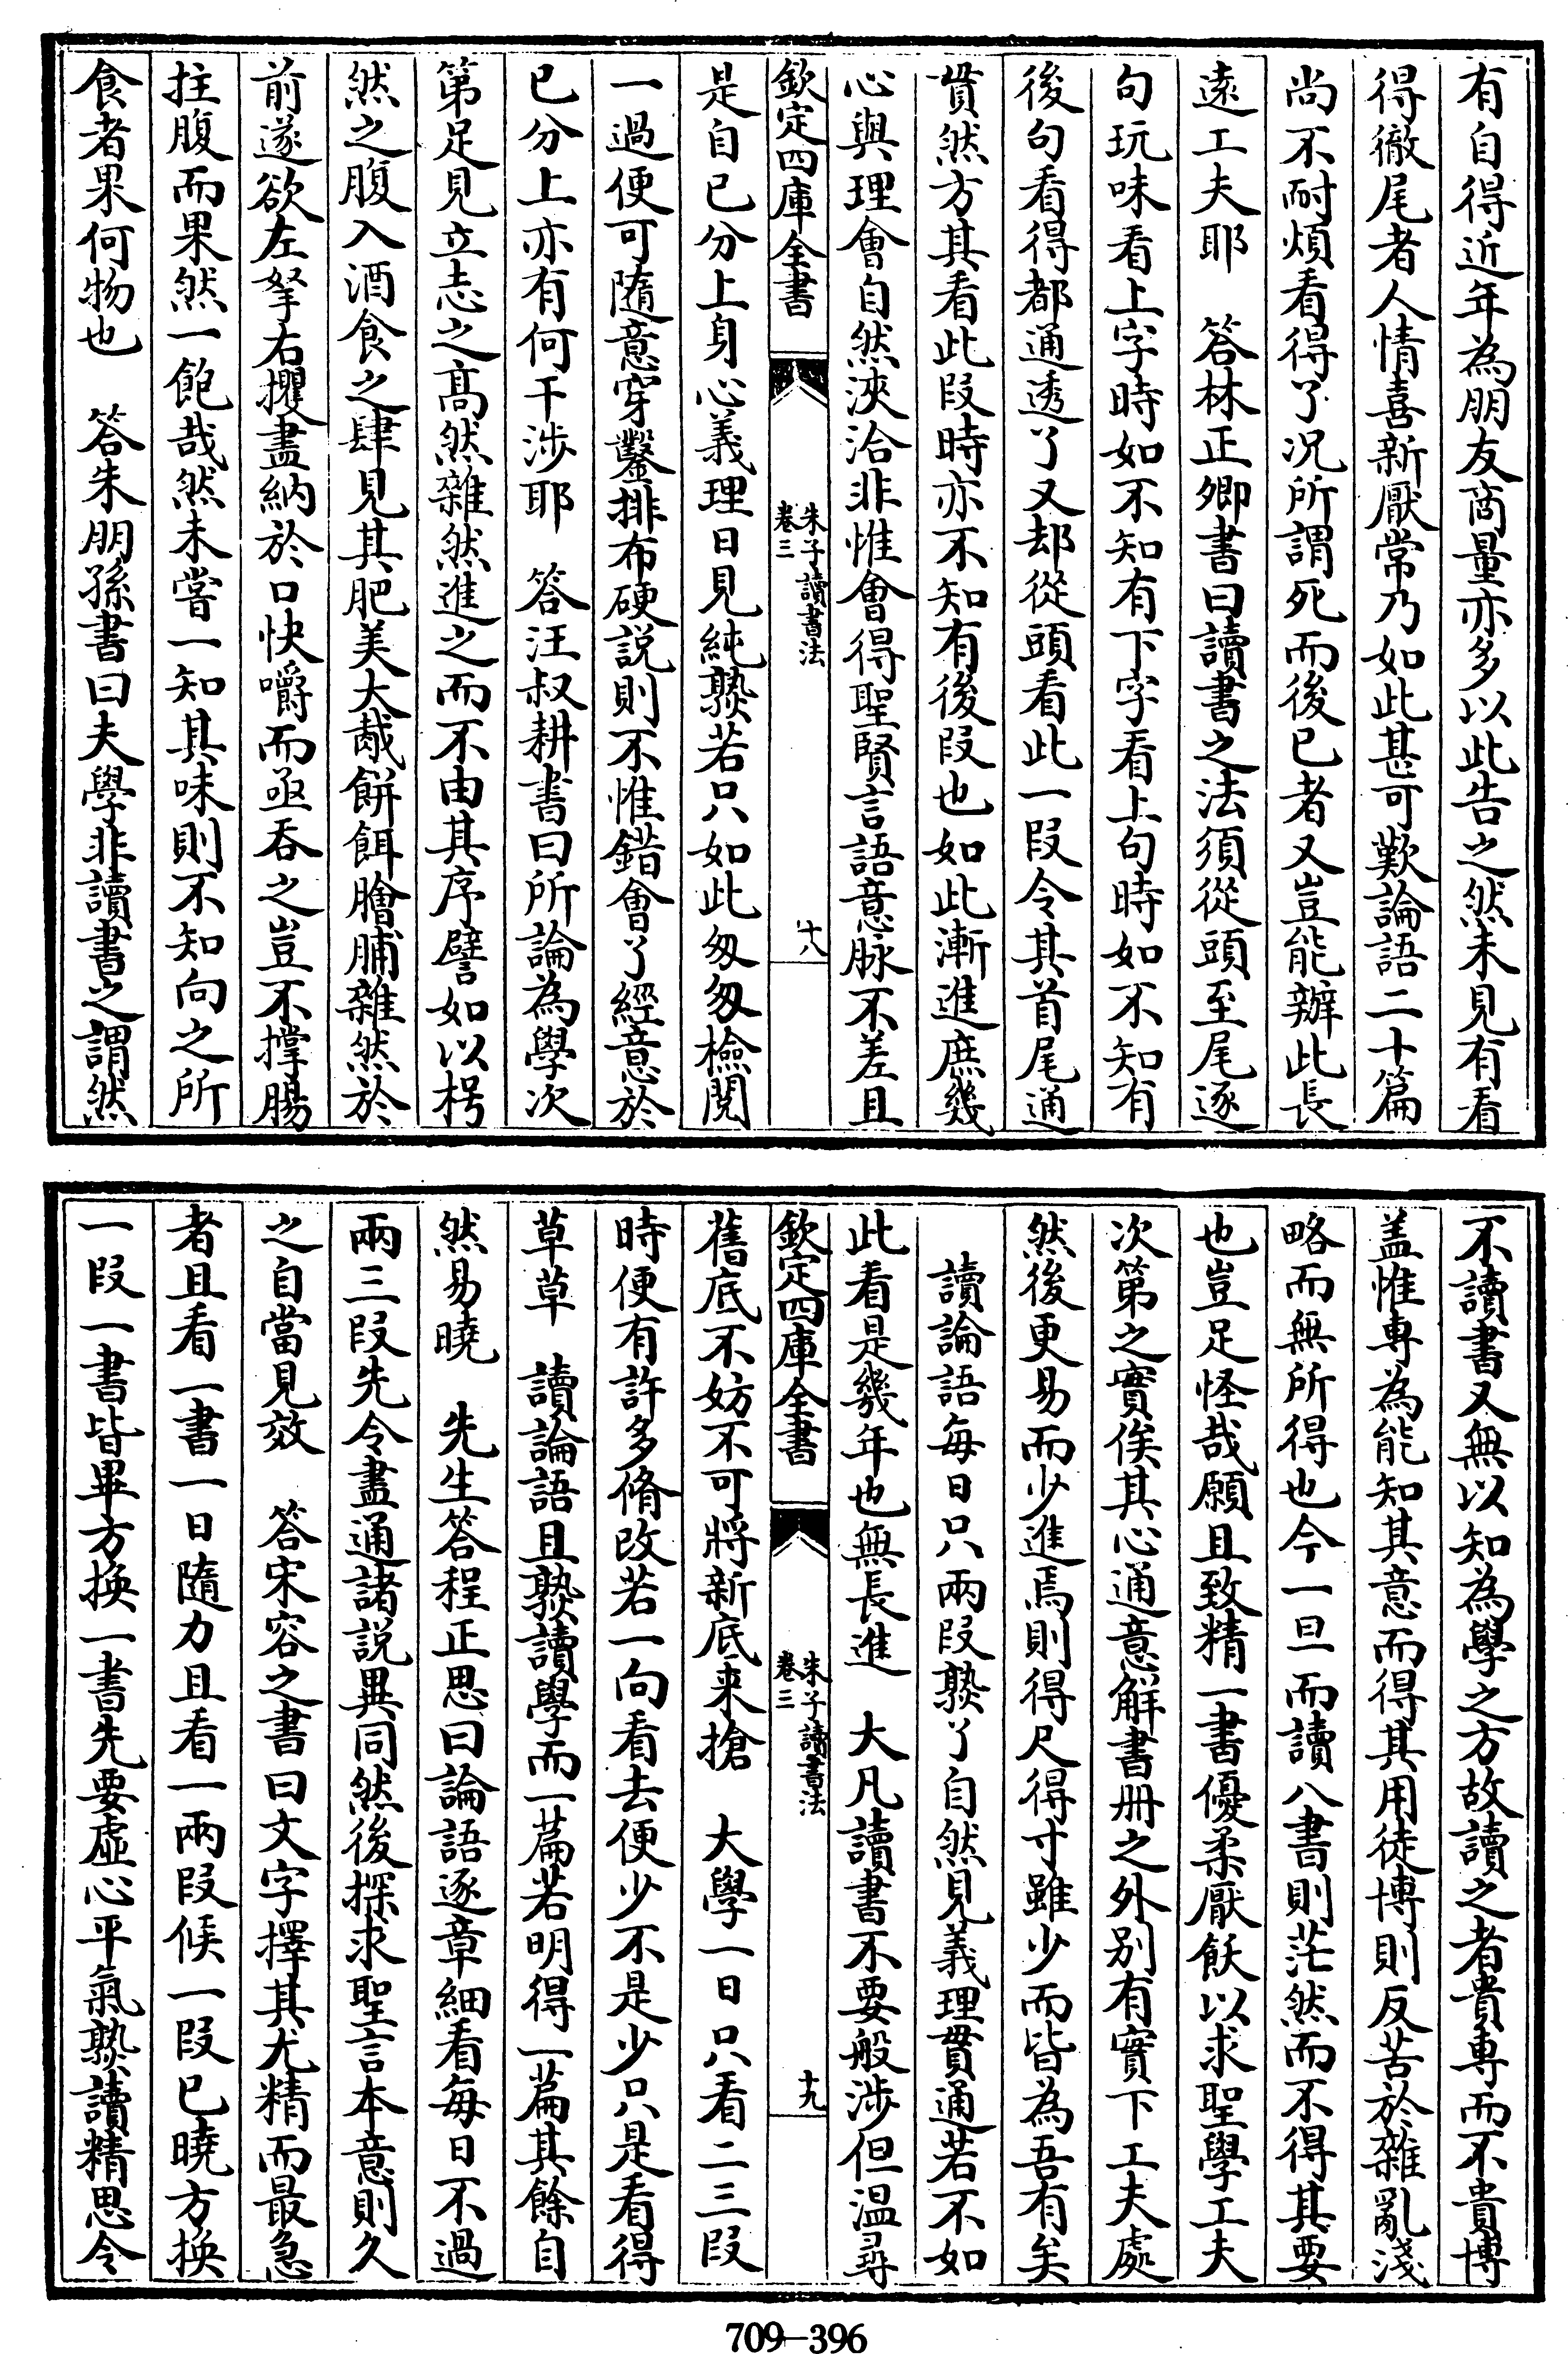 有自得近年為朋友商量亦多以此告之然未見有看
得徹尾者人情喜新厭常乃如此甚可歎論語二十篇
尚不耐煩看得了况所謂死而後已者又豈能辦此長
遠工夫耶　答林正卿書曰讀書之法須從頭至尾逐
句玩味看上字時如不知有下字看上句時如不知有
後句看得都通透了又却從頭看此一段令其首尾通
貫然方其看此段時亦不知有後段也如此漸進庶幾
心與理會自然浹洽非惟會得聖賢言語意脉不差且
欽定四庫全書
朱子讀書法
卷三
十八
是自已分上身心義理日見純熟若只如此匆匆檢閱
一過便可隨意穿鑿排布硬說則不惟錯會了經意於
已分上亦有何干涉耶　答汪叔耕書曰所論為學次
第足見立志之高然雜然進之而不由其序譬如以枵
然之腹入酒食之肆見其肥美大胾餅餌膾脯雜然於
前遂欲左拏右攫盡納於口快嚼而亟吞之豈不撑腸
拄腹而果然一飽哉然未嘗一知其味則不知向之所
食者果何物也　答朱朋孫書曰夫學非讀書之謂然
不讀書又無以知為學之方故讀之者貴專而不貴博
盖惟專為能知其意而得其用徒博則反苦於雜亂淺
略而無所得也今一旦而讀八書則茫然而不得其要
也豈足怪哉願且致精一書優柔厭飫以求聖學工夫
次第之實俟其心通意解書册之外别有實下工夫處
然後更易而少進焉則得尺得寸雖少而皆為吾有矣
讀論語每日只兩段熟了自然見義理貫通若不如
此看是幾年也無長進　大凡讀書不要般涉但温尋
欽定四庫全書
朱子讀書法
卷三
十九
舊底不妨不可將新底来搶　大學一日只看二三段
時便有許多脩改若一向看去便少不是少只是看得
草草　讀論語且熟讀學而一篇若明得一篇其餘自
然易曉　先生答程正思曰論語逐章細看每日不過
兩三段先令盡通諸說異同然後探求聖言本意則久
之自當見效　答宋容之書曰文字擇其尤精而最急
者且看一書一日隨力且看一兩段候一段已曉方換
一段一書皆畢方換一書先要虚心平氣熟讀精思令
709—396